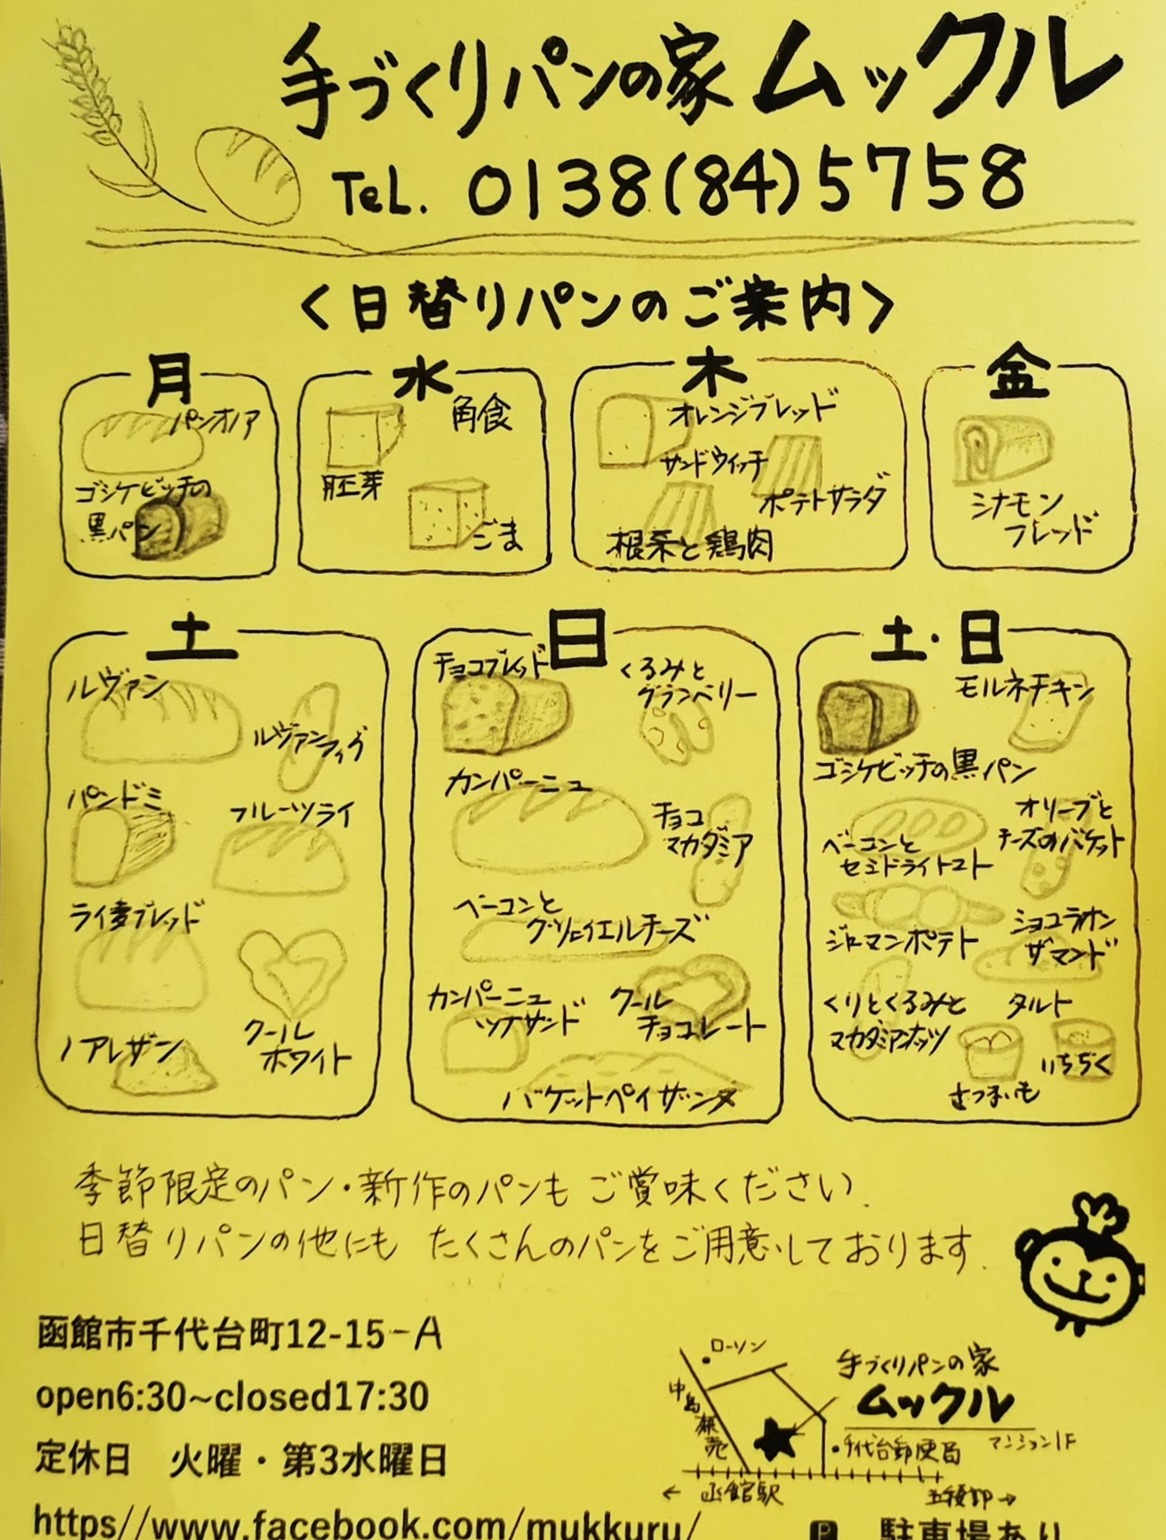 手づくりパンの家 ムックル
TeL. 0138(84)5758
〈日替りパンのご案内〉
月
パンオノア
ゴシケビッチの
黒パン
水
角食
胚芽
ごま
木
オレンジブレッド
サンドウィッチ
ポテトサラダ
根菜と鶏肉
金
シナモン
ブレッド
土
ルヴァン
ルヴァンフィグ
パンドミ
フルーツライ
ライ麦ブレッド
クール
ホワイト
ノアレザン
日
チョコブレッド
くるみと
クランベリー
カンパーニュ
チョコ
マカダミア
ベーコンと
グリュイエルチーズ
カンパーニュ
ツナサンド
クール
チョコレート
バケットペイザンヌ
土・日
モルネチキン
ゴシケビッチの黒パン
オリーブと
チーズのバケット
ベーコンと
セミドライトマト
ジャーマンポテト
ショコラオン
ザマンド
くりとくるみと
マカダミアナッツ
タルト
いちぢく
さつまいも
季節限定のパン・新作のパンも ご賞味ください.
日替りパンの他にも たくさんのパンをご用意しております.
函館市千代台町12-15-A
open6:30~closed17:30
定休日 火曜・第3水曜日
https//www.facebook.com/mukkuru/
ローソン
中島廉売
手づくりパンの家
ムックル
マンション1F
千代台郵便局
← 函館駅
五稜郭→
P 駐車場あり